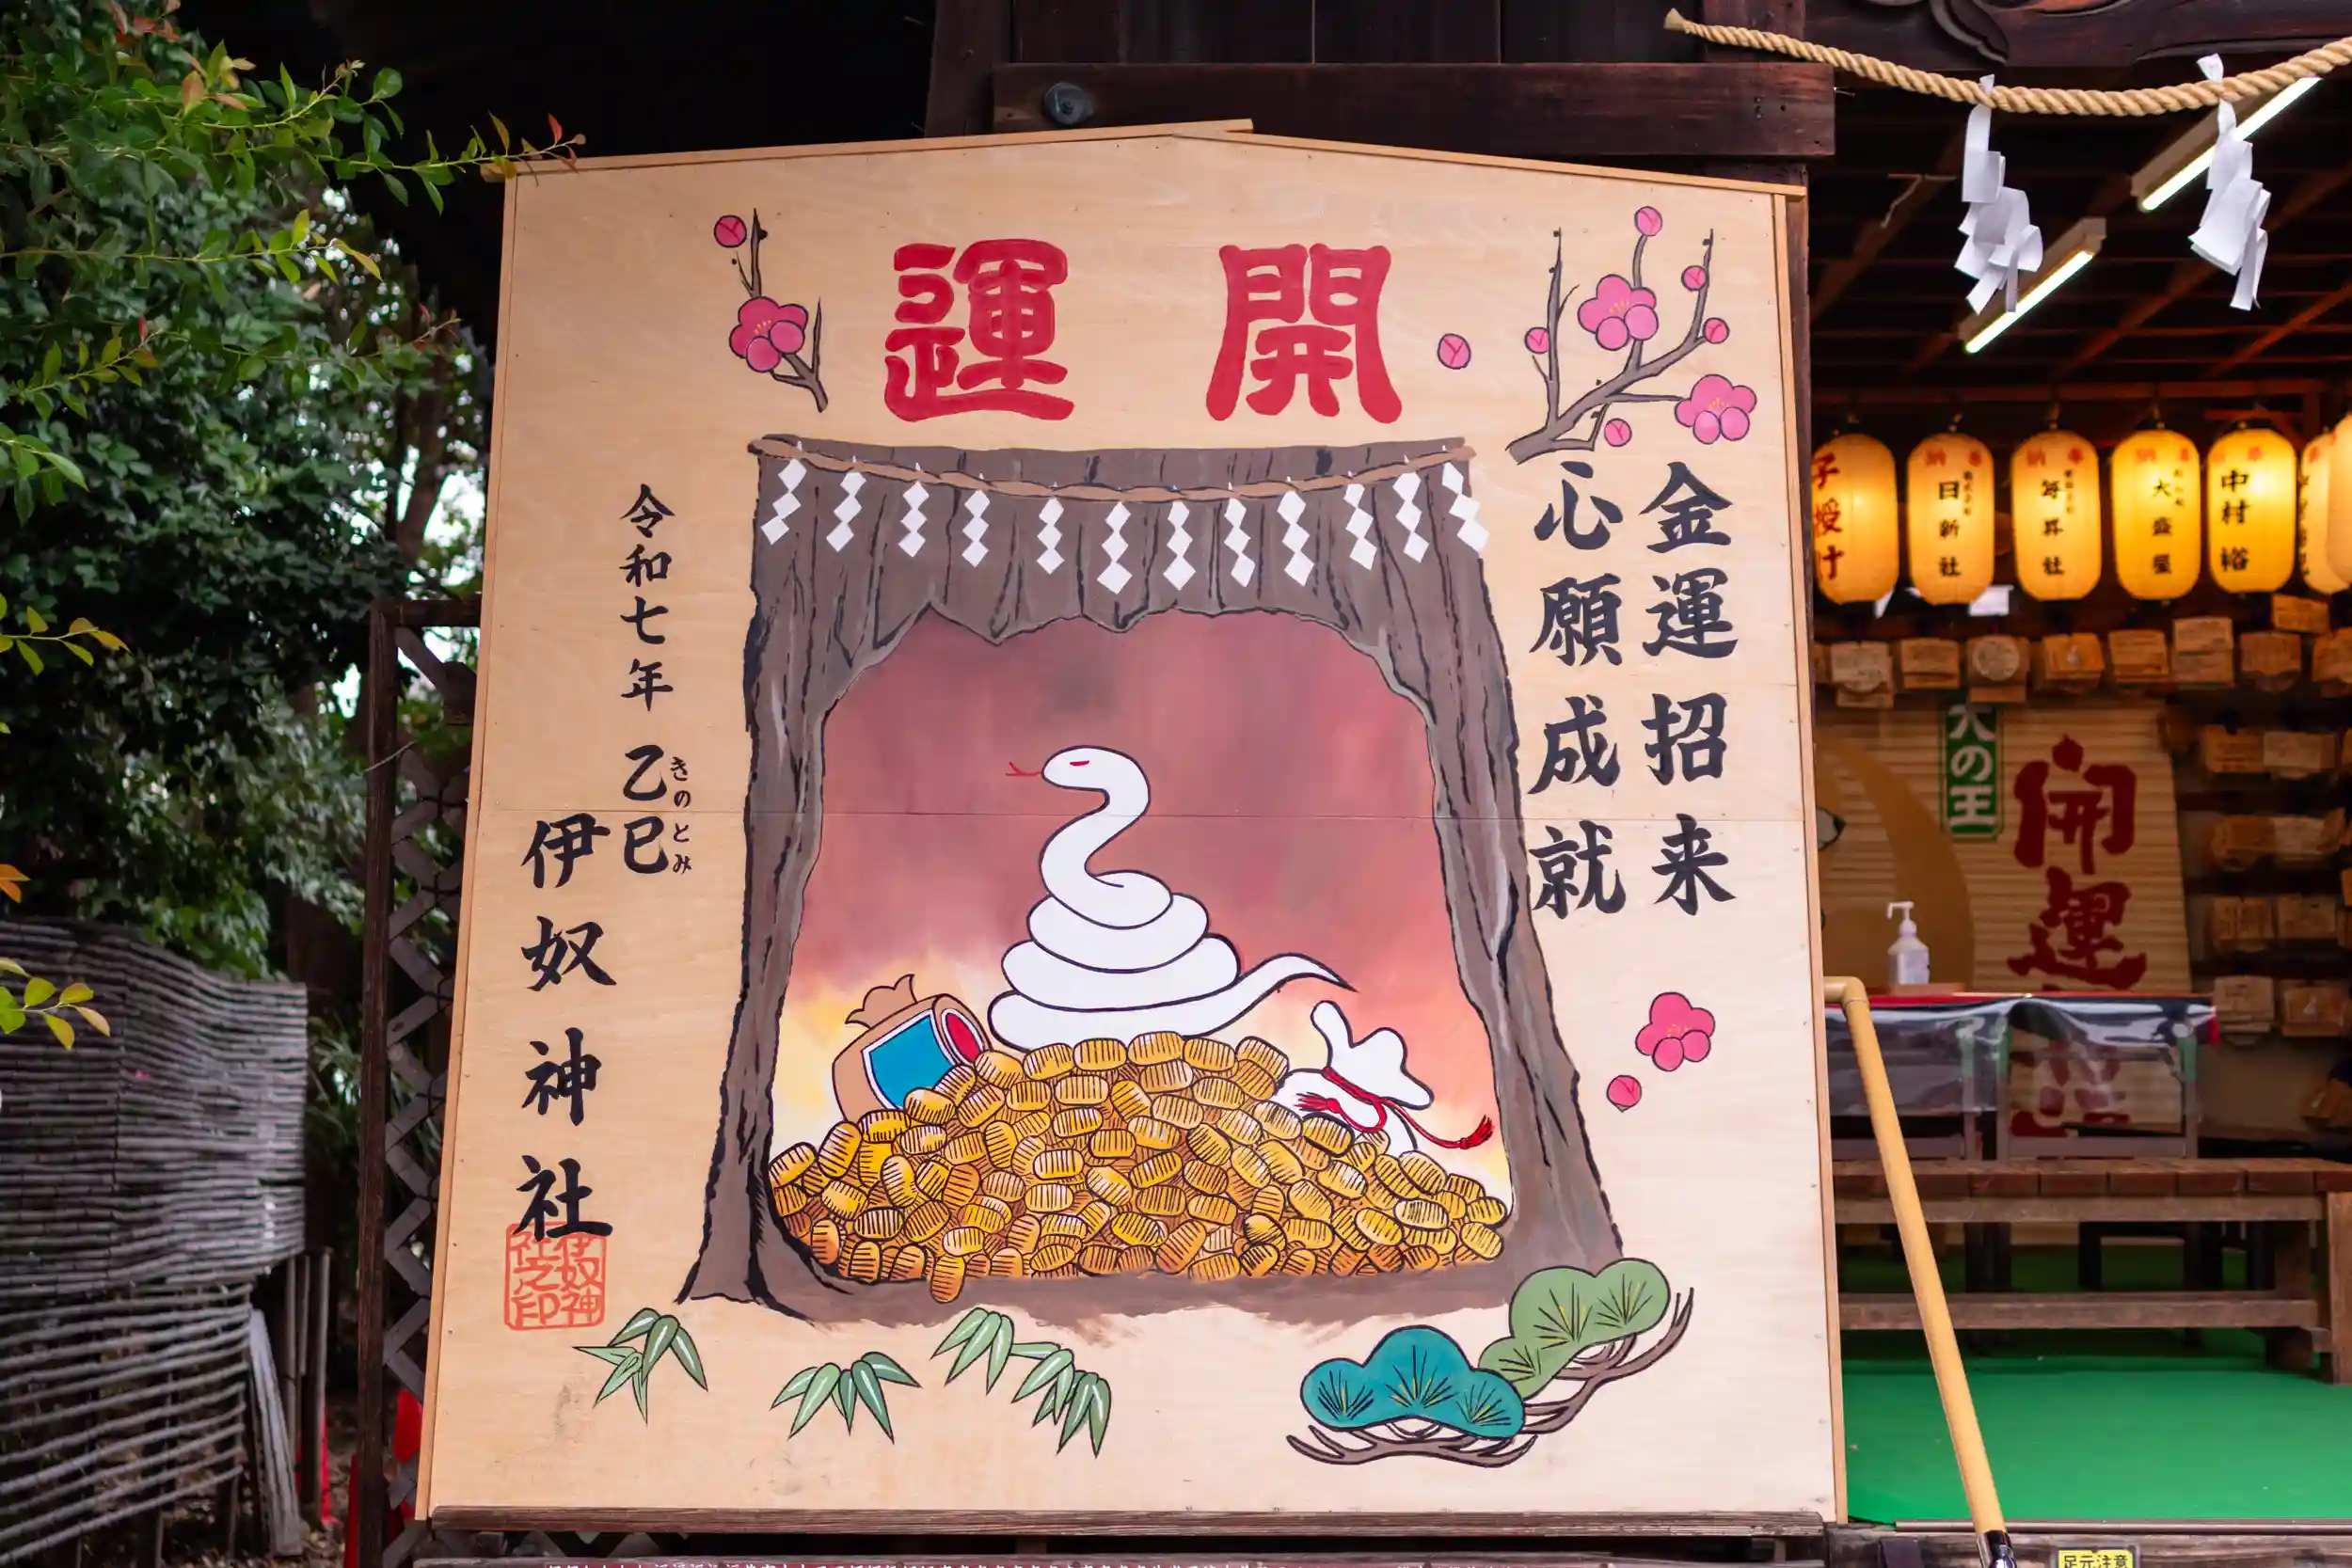 開運
金運招来
心願成就
令和七年 乙巳
きのとみ
伊奴神社
伊奴神社之印
子授け
日新社
毎昇社
大盛屋
中村 裕
犬の王
開運
足元注意